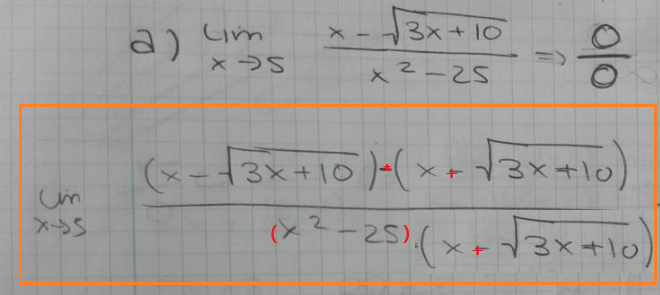 a) Lim x→5 x - √3x+10 / x² - 25 => 0/0
Lim x→5 (x - √3x+10)·(x + √3x+10) / (x² - 25)·(x + √3x+10)